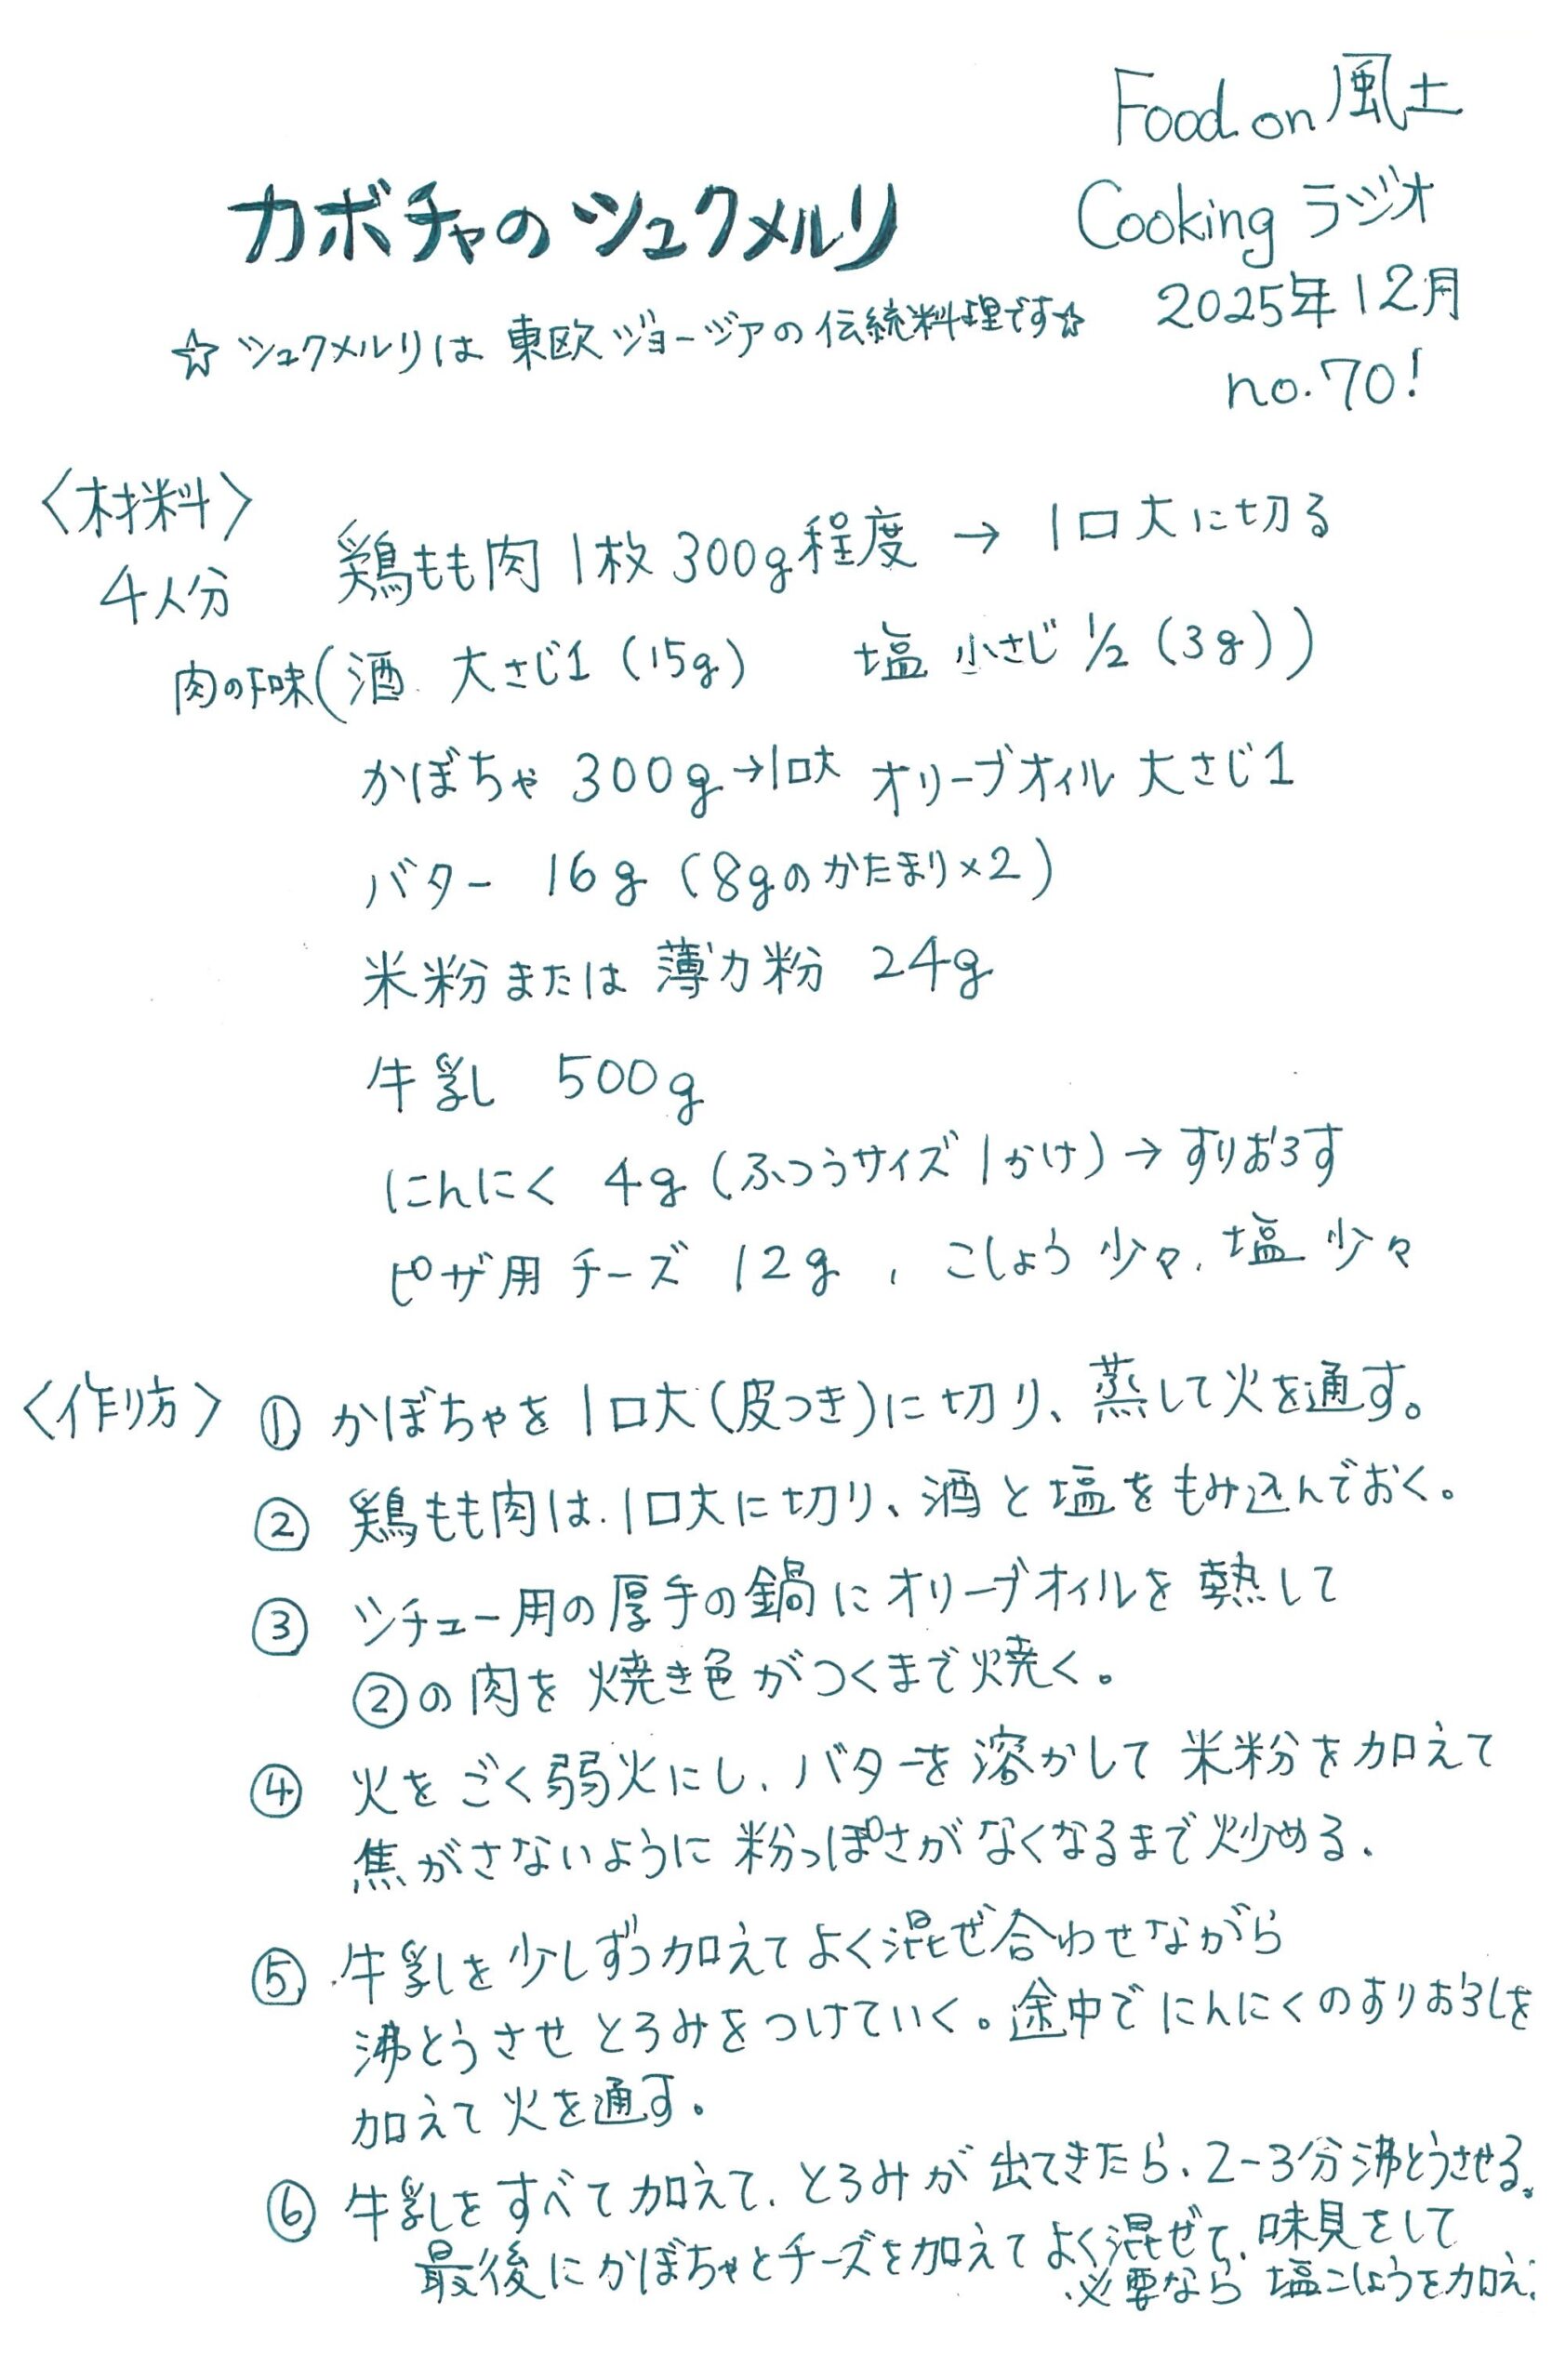 Food on 風土
カボチャのシュクメルリ
Cooking ラジオ
2025年12月
no.70!
☆シュクメルリは東欧ジョージアの伝統料理です☆
〈材料〉
4人分
鶏もも肉 1枚 300g程度 → 1口大に切る
肉の下味(酒 大さじ1 (15g) 塩 小さじ 1/2 (3g))
かぼちゃ 300g→1口大 オリーブオイル 大さじ1
バター 16g (8gのかたまり×2)
米粉または薄力粉 24g
牛乳 500g
にんにく 4g (ふつうサイズ 1かけ) → すりおろす
ピザ用チーズ 12g, こしょう 少々, 塩 少々
〈作り方〉 ① かぼちゃを1口大(皮つき)に切り、蒸して火を通す。
② 鶏もも肉は、1口大に切り、酒と塩をもみ込んでおく。
③ シチュー用の厚手の鍋にオリーブオイルを熱して
②の肉を焼き色がつくまで焼く。
④ 火をごく弱火にし、バターを溶かして米粉を加えて
焦がさないように粉っぽさがなくなるまで炒める。
⑤ 牛乳を少しずつ加えてよく混ぜ合わせながら
沸とうさせとろみをつけていく。途中でにんにくのすりおろしを
加えて火を通す。
⑥ 牛乳をすべて加えて、とろみが出てきたら、2-3分沸とうさせる。
最後にかぼちゃとチーズを加えてよく混ぜて、味見をして
必要なら 塩こしょうを加え